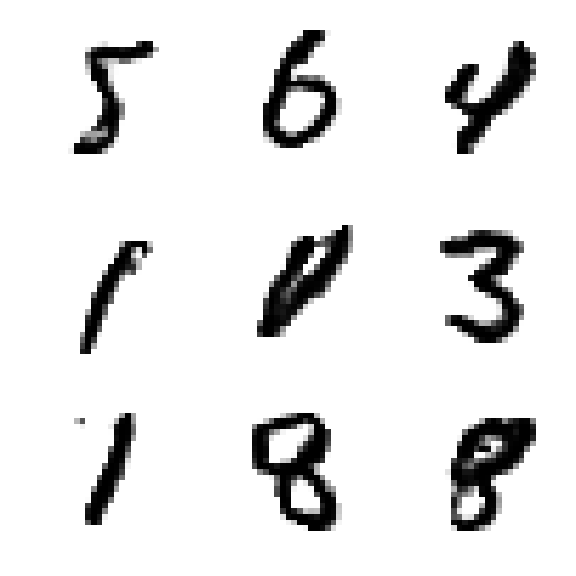 5 6 4
1 3
1 8 8